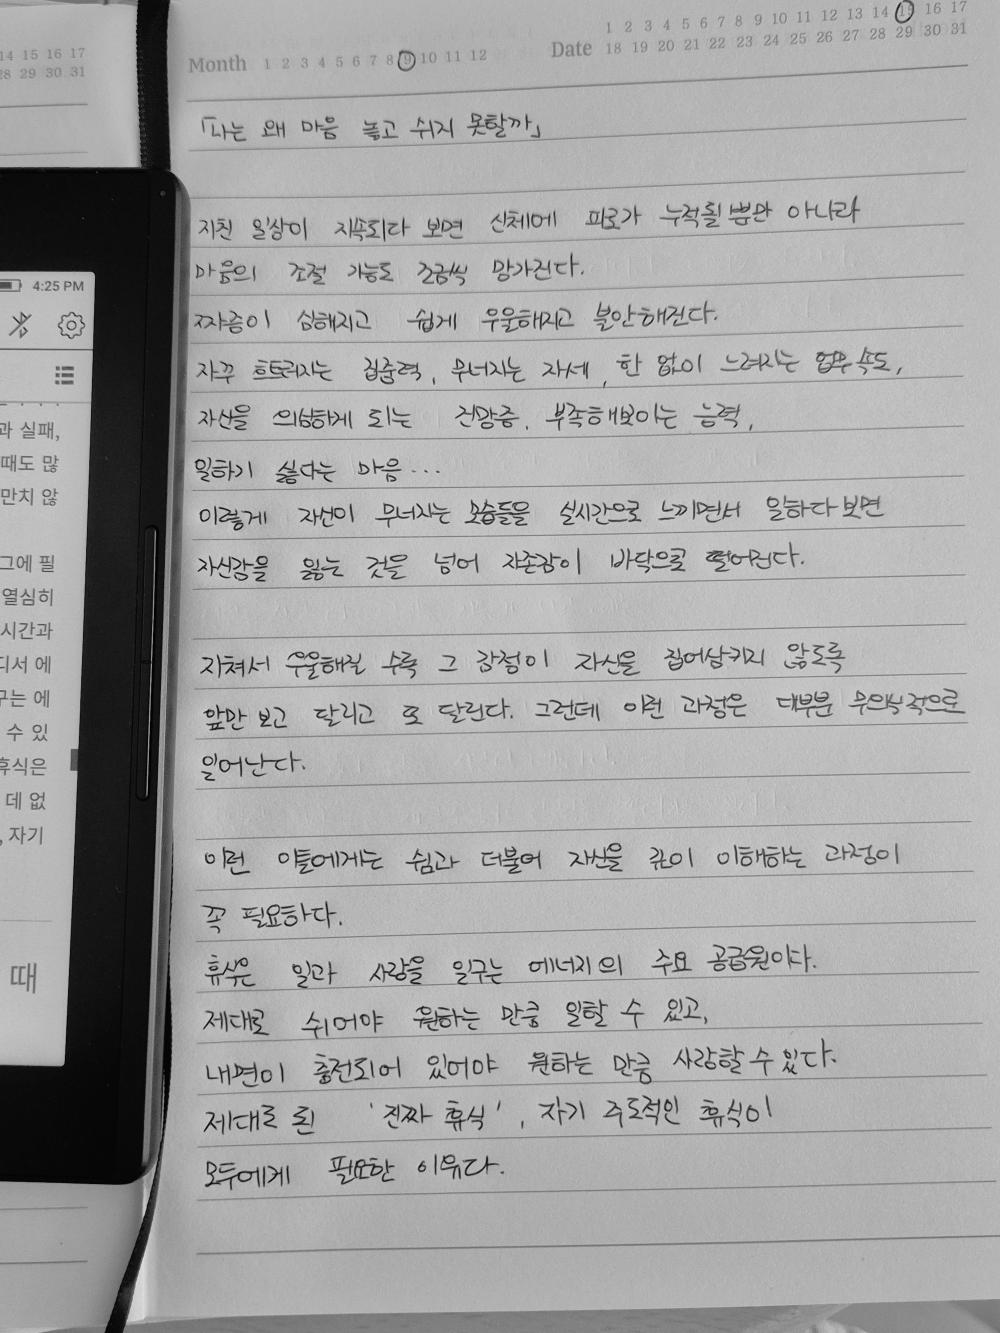 14 15 16 17
28 29 30 31
4:25 PM
과 실패,
때도 많
만치 않
그에 필
열심히
시간과
디서 에
구는 에
수 있
휴식은
데 없
, 자기
때
Month 1 2 3 4 5 6 7 8 9 10 11 12
Date 1 2 3 4 5 6 7 8 9 10 11 12 13 14 15 16 17
18 19 20 21 22 23 24 25 26 27 28 29 30 31
「나는 왜 마음 놓고 쉬지 못할까」
지친 일상이 지속되다 보면 신체에 피로가 누적될 뿐만 아니라
마음의 조절 기능도 조금씩 망가진다.
짜증이 심해지고 쉽게 우울해지고 불안해진다.
자꾸 흐트러지는 집중력, 무너지는 자세, 한 없이 느려지는 업무 속도,
자신을 의심하게 되는 건망증, 부족해보이는 능력,
일하기 싫다는 마음...
이렇게 자신이 무너지는 모습들을 실시간으로 느끼면서 일하다 보면
자신감을 잃는 것을 넘어 자존감이 바닥으로 떨어진다.
지쳐서 우울해질 수록 그 감정이 자신을 집어삼키지 않도록
앞만 보고 달리고 또 달린다. 그런데 이런 과정은 대부분 무의식적으로
일어난다.
이런 이들에게는 쉼과 더불어 자신을 깊이 이해하는 과정이
꼭 필요하다.
휴식은 일과 사랑을 일구는 에너지의 주요 공급원이다.
제대로 쉬어야 원하는 만큼 일할 수 있고,
내면이 충전되어 있어야 원하는 만큼 사랑할 수 있다.
제대로 된 '진짜 휴식', 자기 주도적인 휴식이
모두에게 필요한 이유다.